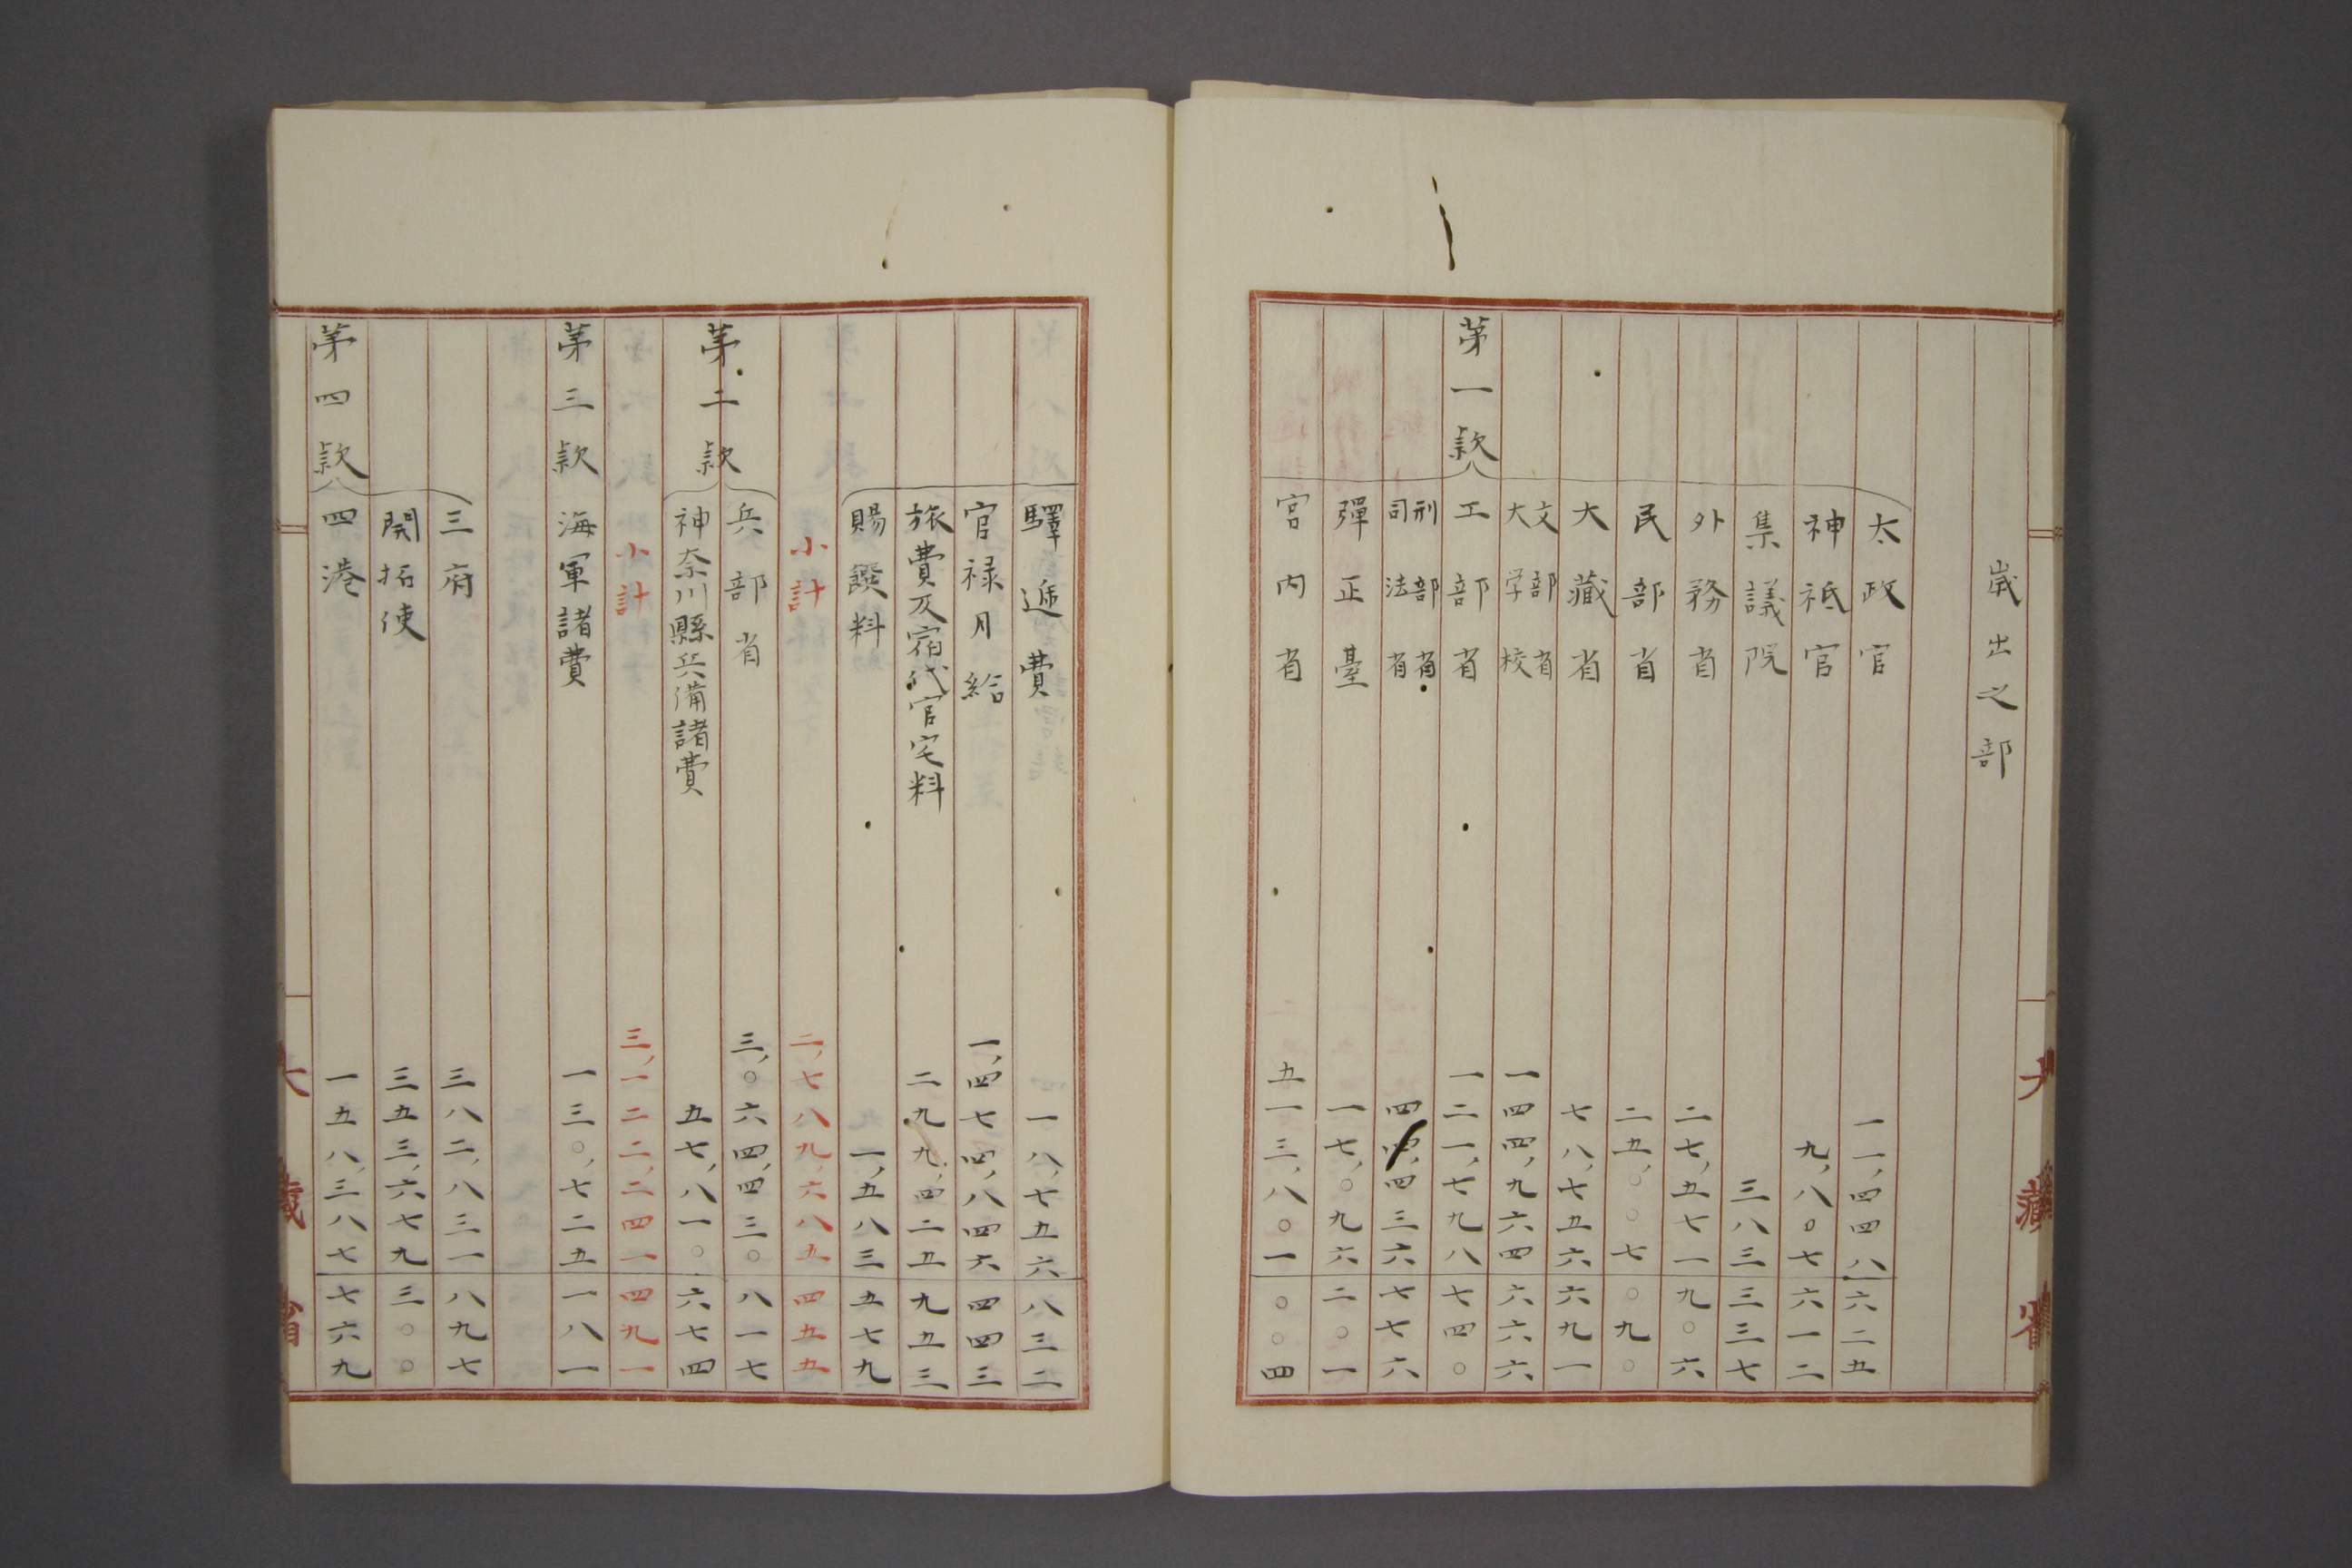 歳出之部
太政官 一一,四四八六二五
神祗官 九,八〇七六一二
集議院 三八三三三七
外務省 二七,五七一九〇六
民部省 二五,〇〇七〇九〇
大藏省 七八,七五六六九一
文部省 大学校 一四四,九六四六六六
第一款 工部省 一二一,七九八七四〇
刑部省 司法省 四四,四三六七七六
彈正臺 一七,〇九六二〇一
宮内省 五一三,八〇一〇〇四
大藏省
驛逓費 一八,七五六八三二
官禄月給 一,四七四,八四六四四三
旅費及宿代官宅料 二九九,四二五九五三
賜饌料 一,五八三五七九
小計 二,七八九,六八五四五五
第二款
兵部省 三,〇六四,四三〇八一七
神奈川縣兵備諸費 五七,八一〇六七四
小計 三,一二二,二四一四九一
第三款 海軍諸費 一三〇,七二五一八一
三府 三八二,八三一八九七
開拓使 三五三,六七九三〇〇
第四款 四港 一五八,三八七七六九
大藏省